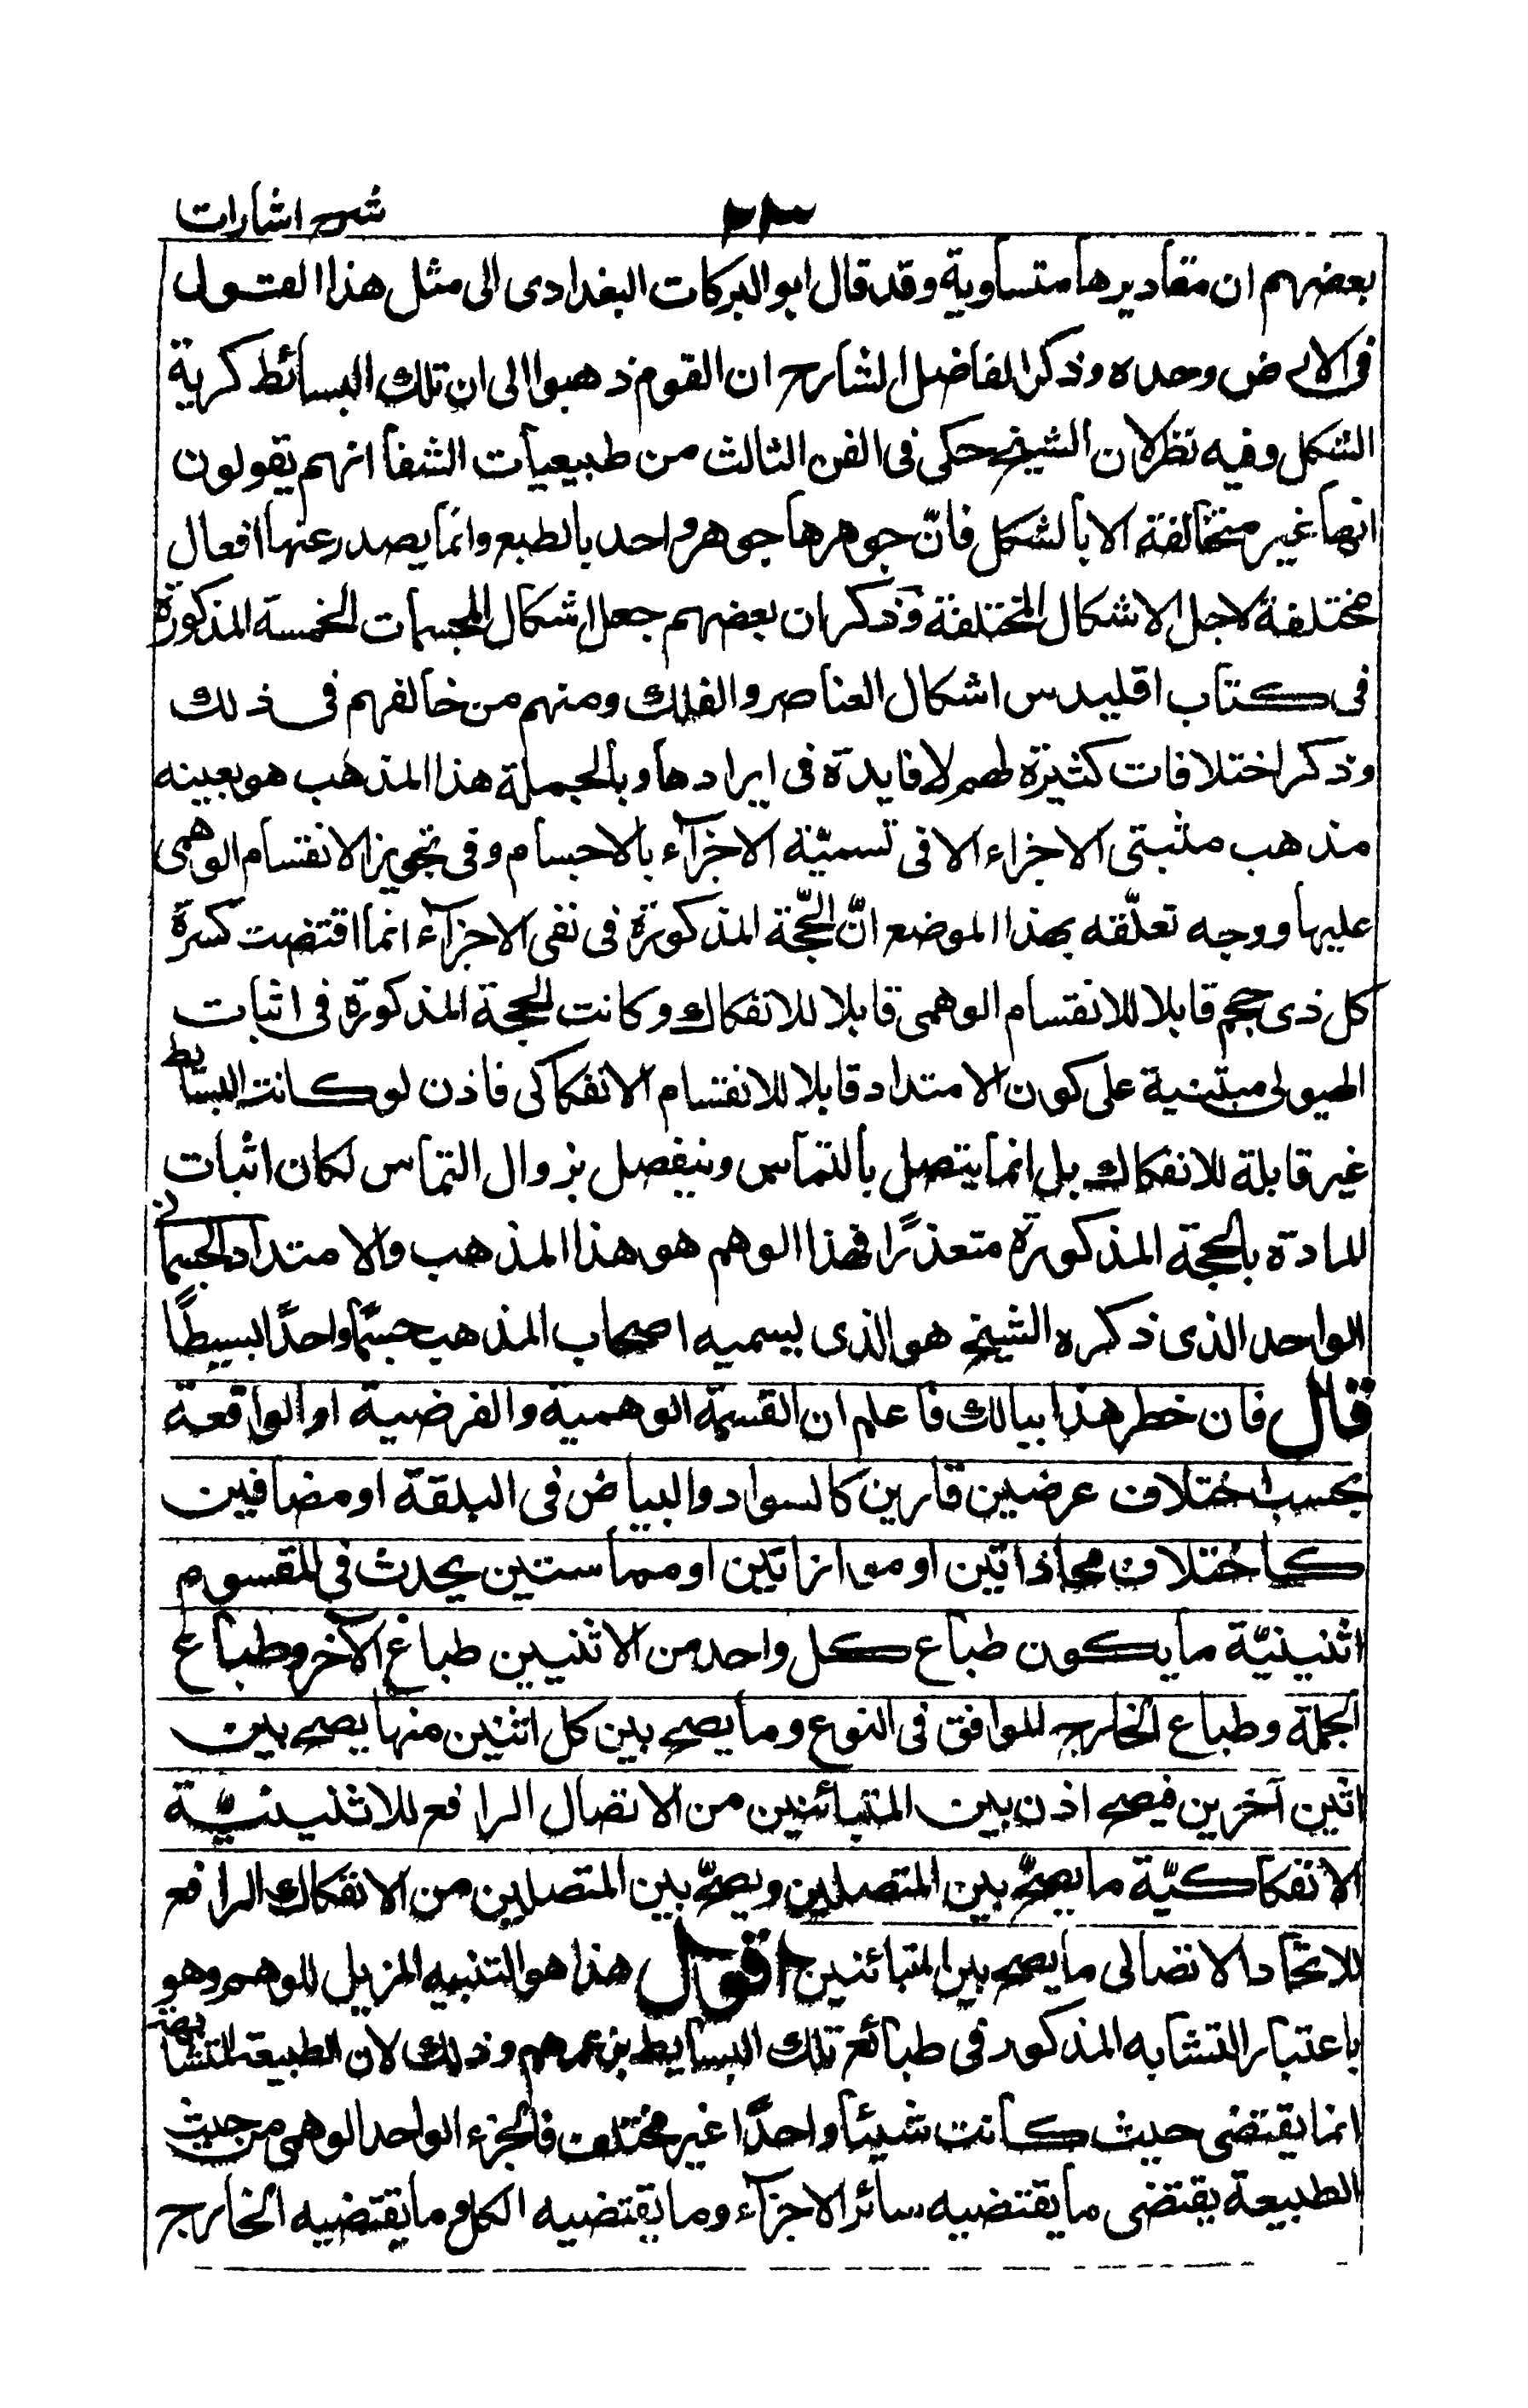 شرح اشارات
بعضهم ان مقاديرها متساوية وقد قال ابو البركات البغدادى الى مثل هذا القول
فى الارض وحده وذكر الفاضل الشارح ان القوم ذهبوا الى ان تلك البسائط كرية
الشكل وفيه نظر لان الشيخ حكى فى الفن الثالث من طبيعيات الشفا انهم يقولون
انها غير متخالفة الا بالشكل فانّ جوهرها جوهر واحد بالطبع وانما يصدر عنها افعال
مختلفة لاجل الاشكال المختلفة وذكر ان بعضهم جعل اشكال المجسمات الخمسة المذكورة
فى كتاب اقليدس اشكال العناصر والفلك ومنهم من خالفهم فى ذلك
وذكر اختلافات كثيرة لهم لا فايدة فى ايرادها وبالجملة هذا المذهب هو بعينه
مذهب مثبتى الاجزاء الا فى تسميّة الاجزآء بالاجسام وفى تجويز الانقسام الوهمى
عليها ووجه تعلّقه بهذا الموضع انّ الحّجة المذكورة فى نفى الاجزآء انما اقتضت كسرة
كل ذى حجم قابلا للانقسام الوهمى قابلا للانفكاك وكانت الحجة المذكورة فى اثبات
الهيولى مبتنية على كون الامتداد قابلا للانقسام الانفكاكى فاذن لو كانت البسايط
غير قابلة للانفكاك بل انما يتصل بالتماس وينفصل بزوال التماس لكان اثبات
المادة بالحجة المذكورة متعذرًا فهذا الوهم هو هذا المذهب والامتداد الجسمانى
الواحد الذى ذكره الشيخ هو الذى يسميه اصحاب المذهب جسمًا واحدًا بسيطًا
قال فان خطر هذا ببالك فاعلم ان القسمة الوهمية والفرضية او الواقعة
بحسب اختلاف عرضين قارين كالسواد والبياض فى البلقة او مضافين
كاختلاف محاذاتين او موازاتين او مماستين يحدث فى المقسوم
اثنينيّة ما يكون طباع كل واحد من الاثنين طباع الآخر وطباع
الجملة وطباع الخارج الموافق فى النوع وما يصح بين كل اثنين منها يصح بين
اثنين آخرين فيصح اذن بين المتبائنين من الاتصال الرافع للاثنينيّة
الانفكاكيّة ما يصحّ بين المتصلين ويصحّ بين المتصلين من الانفكاك الرافع
للاتحاد الاتصالى ما يصح بين المتبائنين اقول هذا هو التنبيه المزيل للوهم وهو
باعتبار التشابه المذكور فى طبائع تلك البسايط بزعمهم وذلك لان الطبيعة المتشابهة
انما يقتضى حيث كانت شيئا واحدًا غير مختلف فالجزء الواحد الوهمى من حيث
الطبيعة يقتضى ما يقتضيه سائر الاجزآء وما يقتضيه الكل وما يقتضيه الخارج